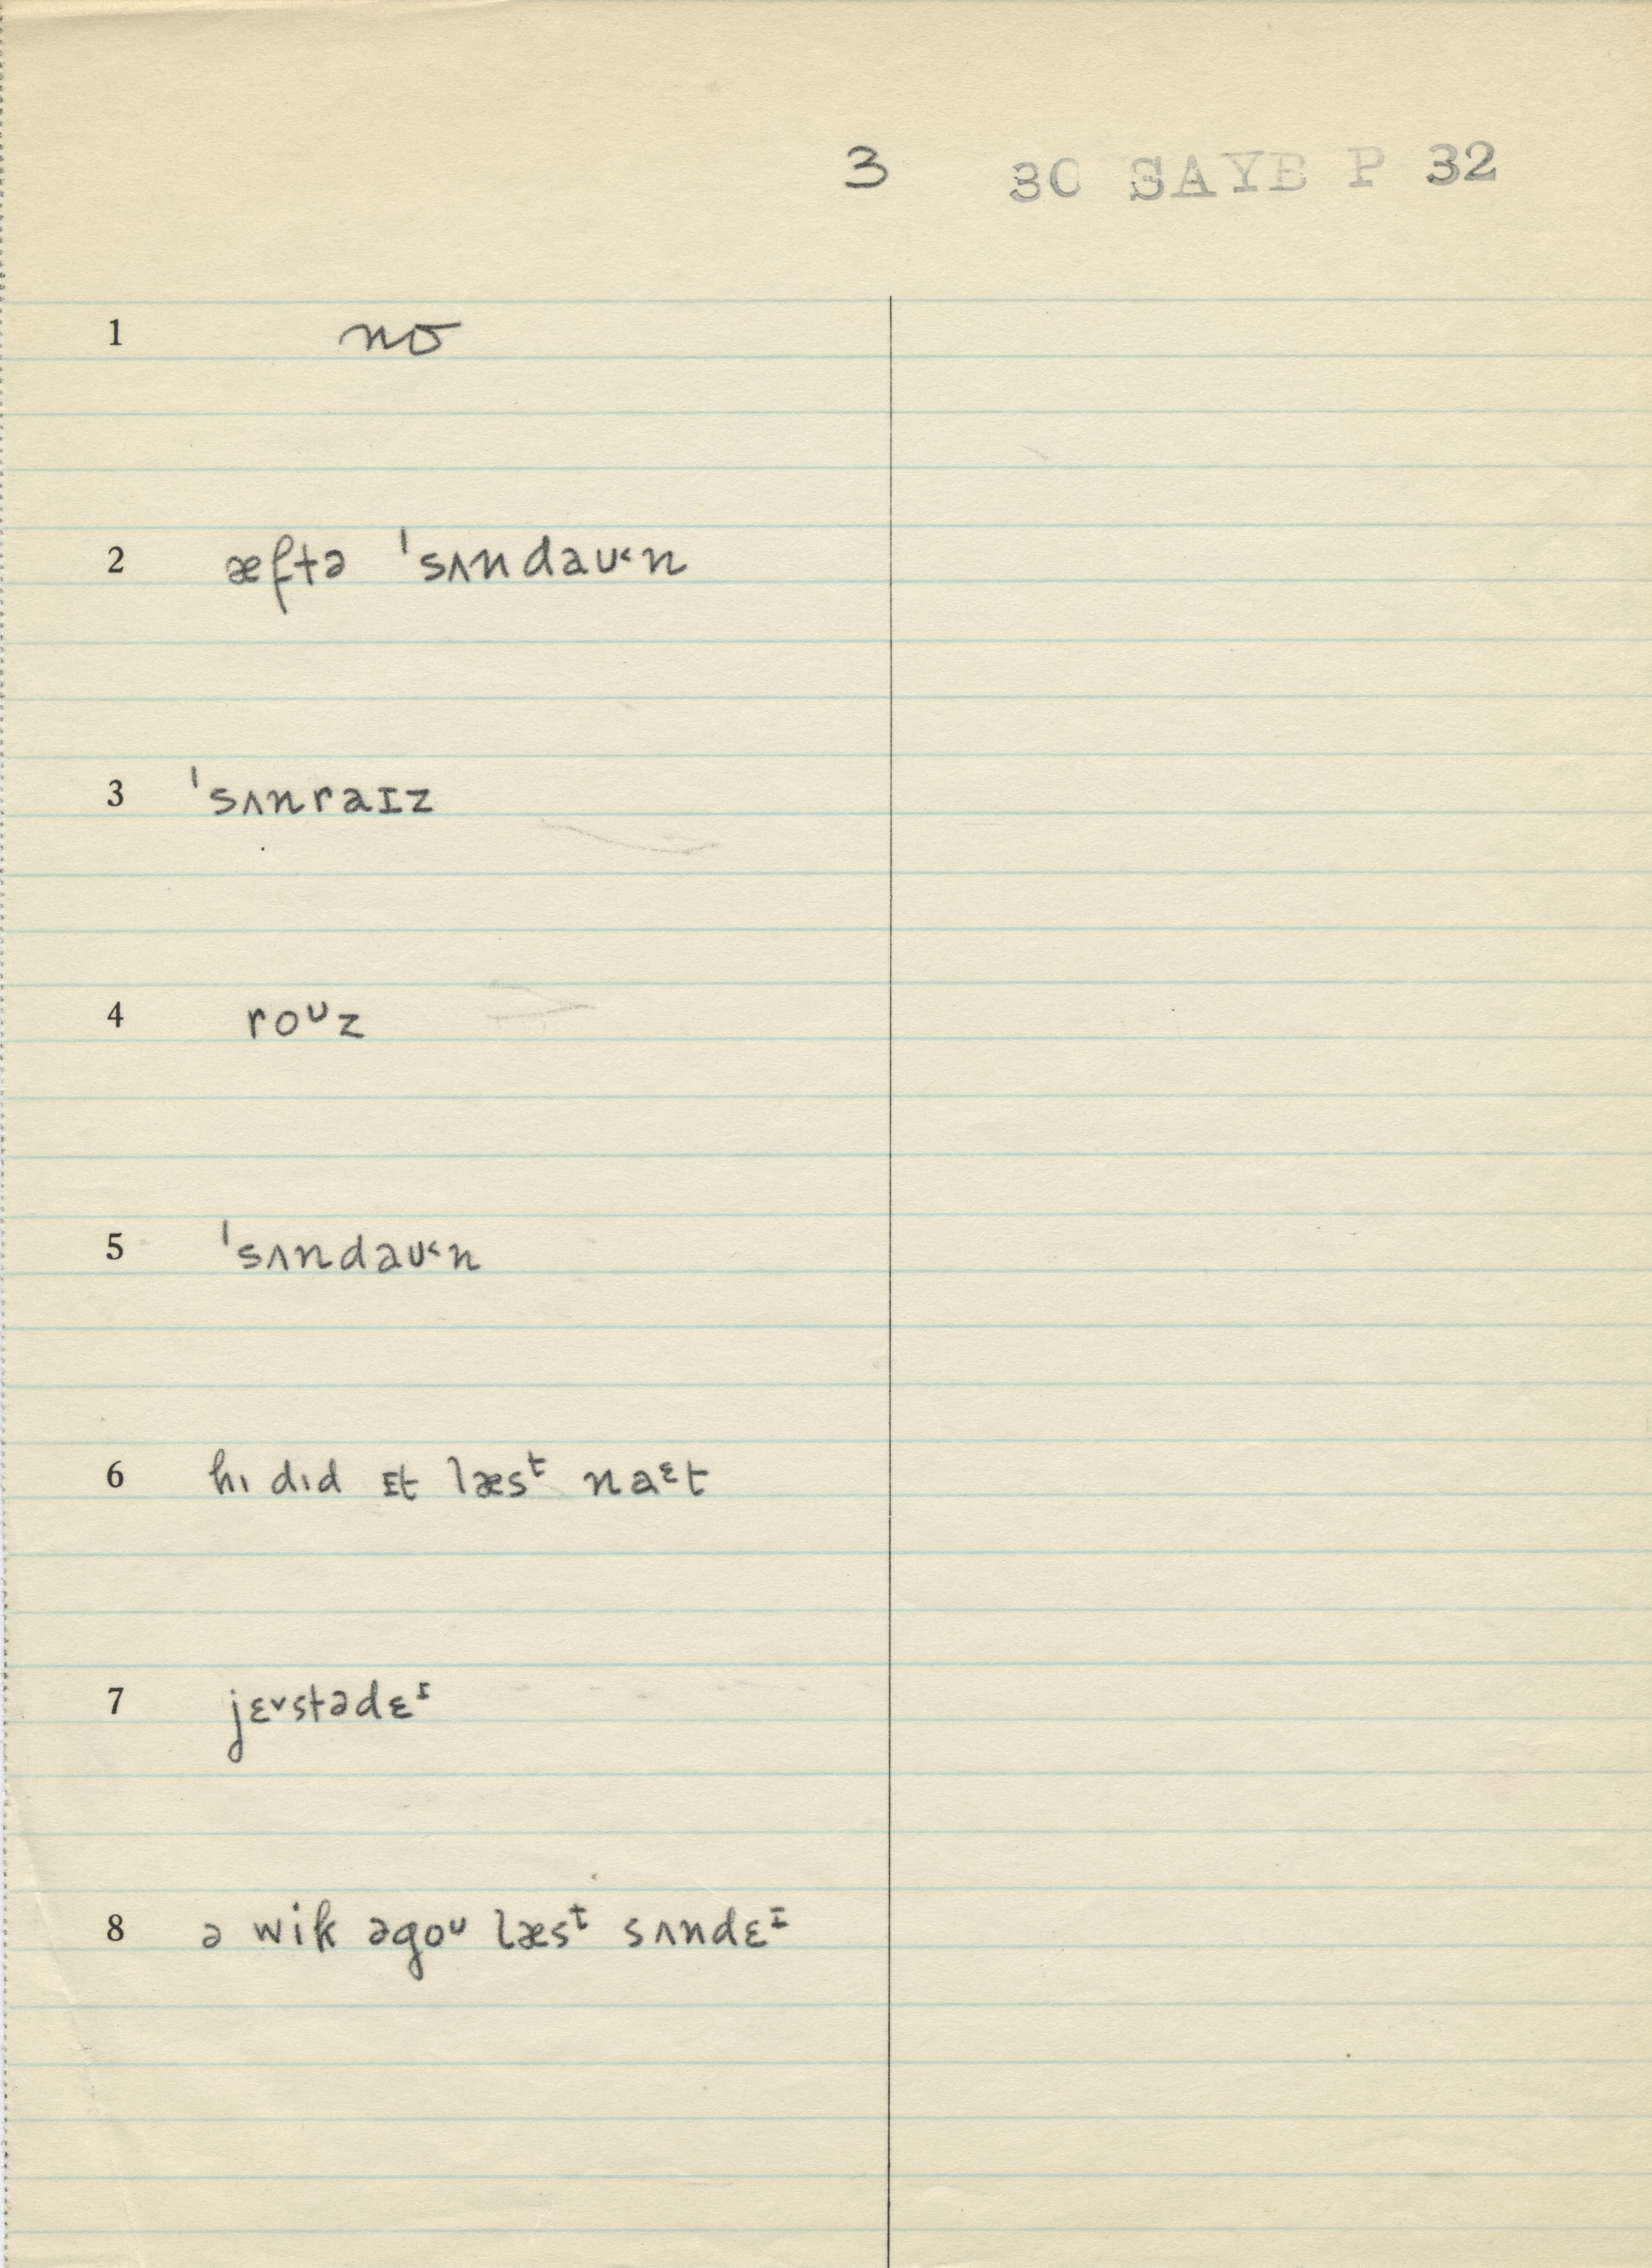 3 30 SAYB P 32
1 no
2 æftə ˈsʌndaʊ˂n
3 ˈsʌnraɪz
4 roᶷz
5 ˈsʌndaʊ˂n
6 hı dıd ɪt læsᵗ naᵋt
7 jɛ˅stədɛᶦ
8 ə wik əgoᶷ læsᵗ sʌndɛᶦ